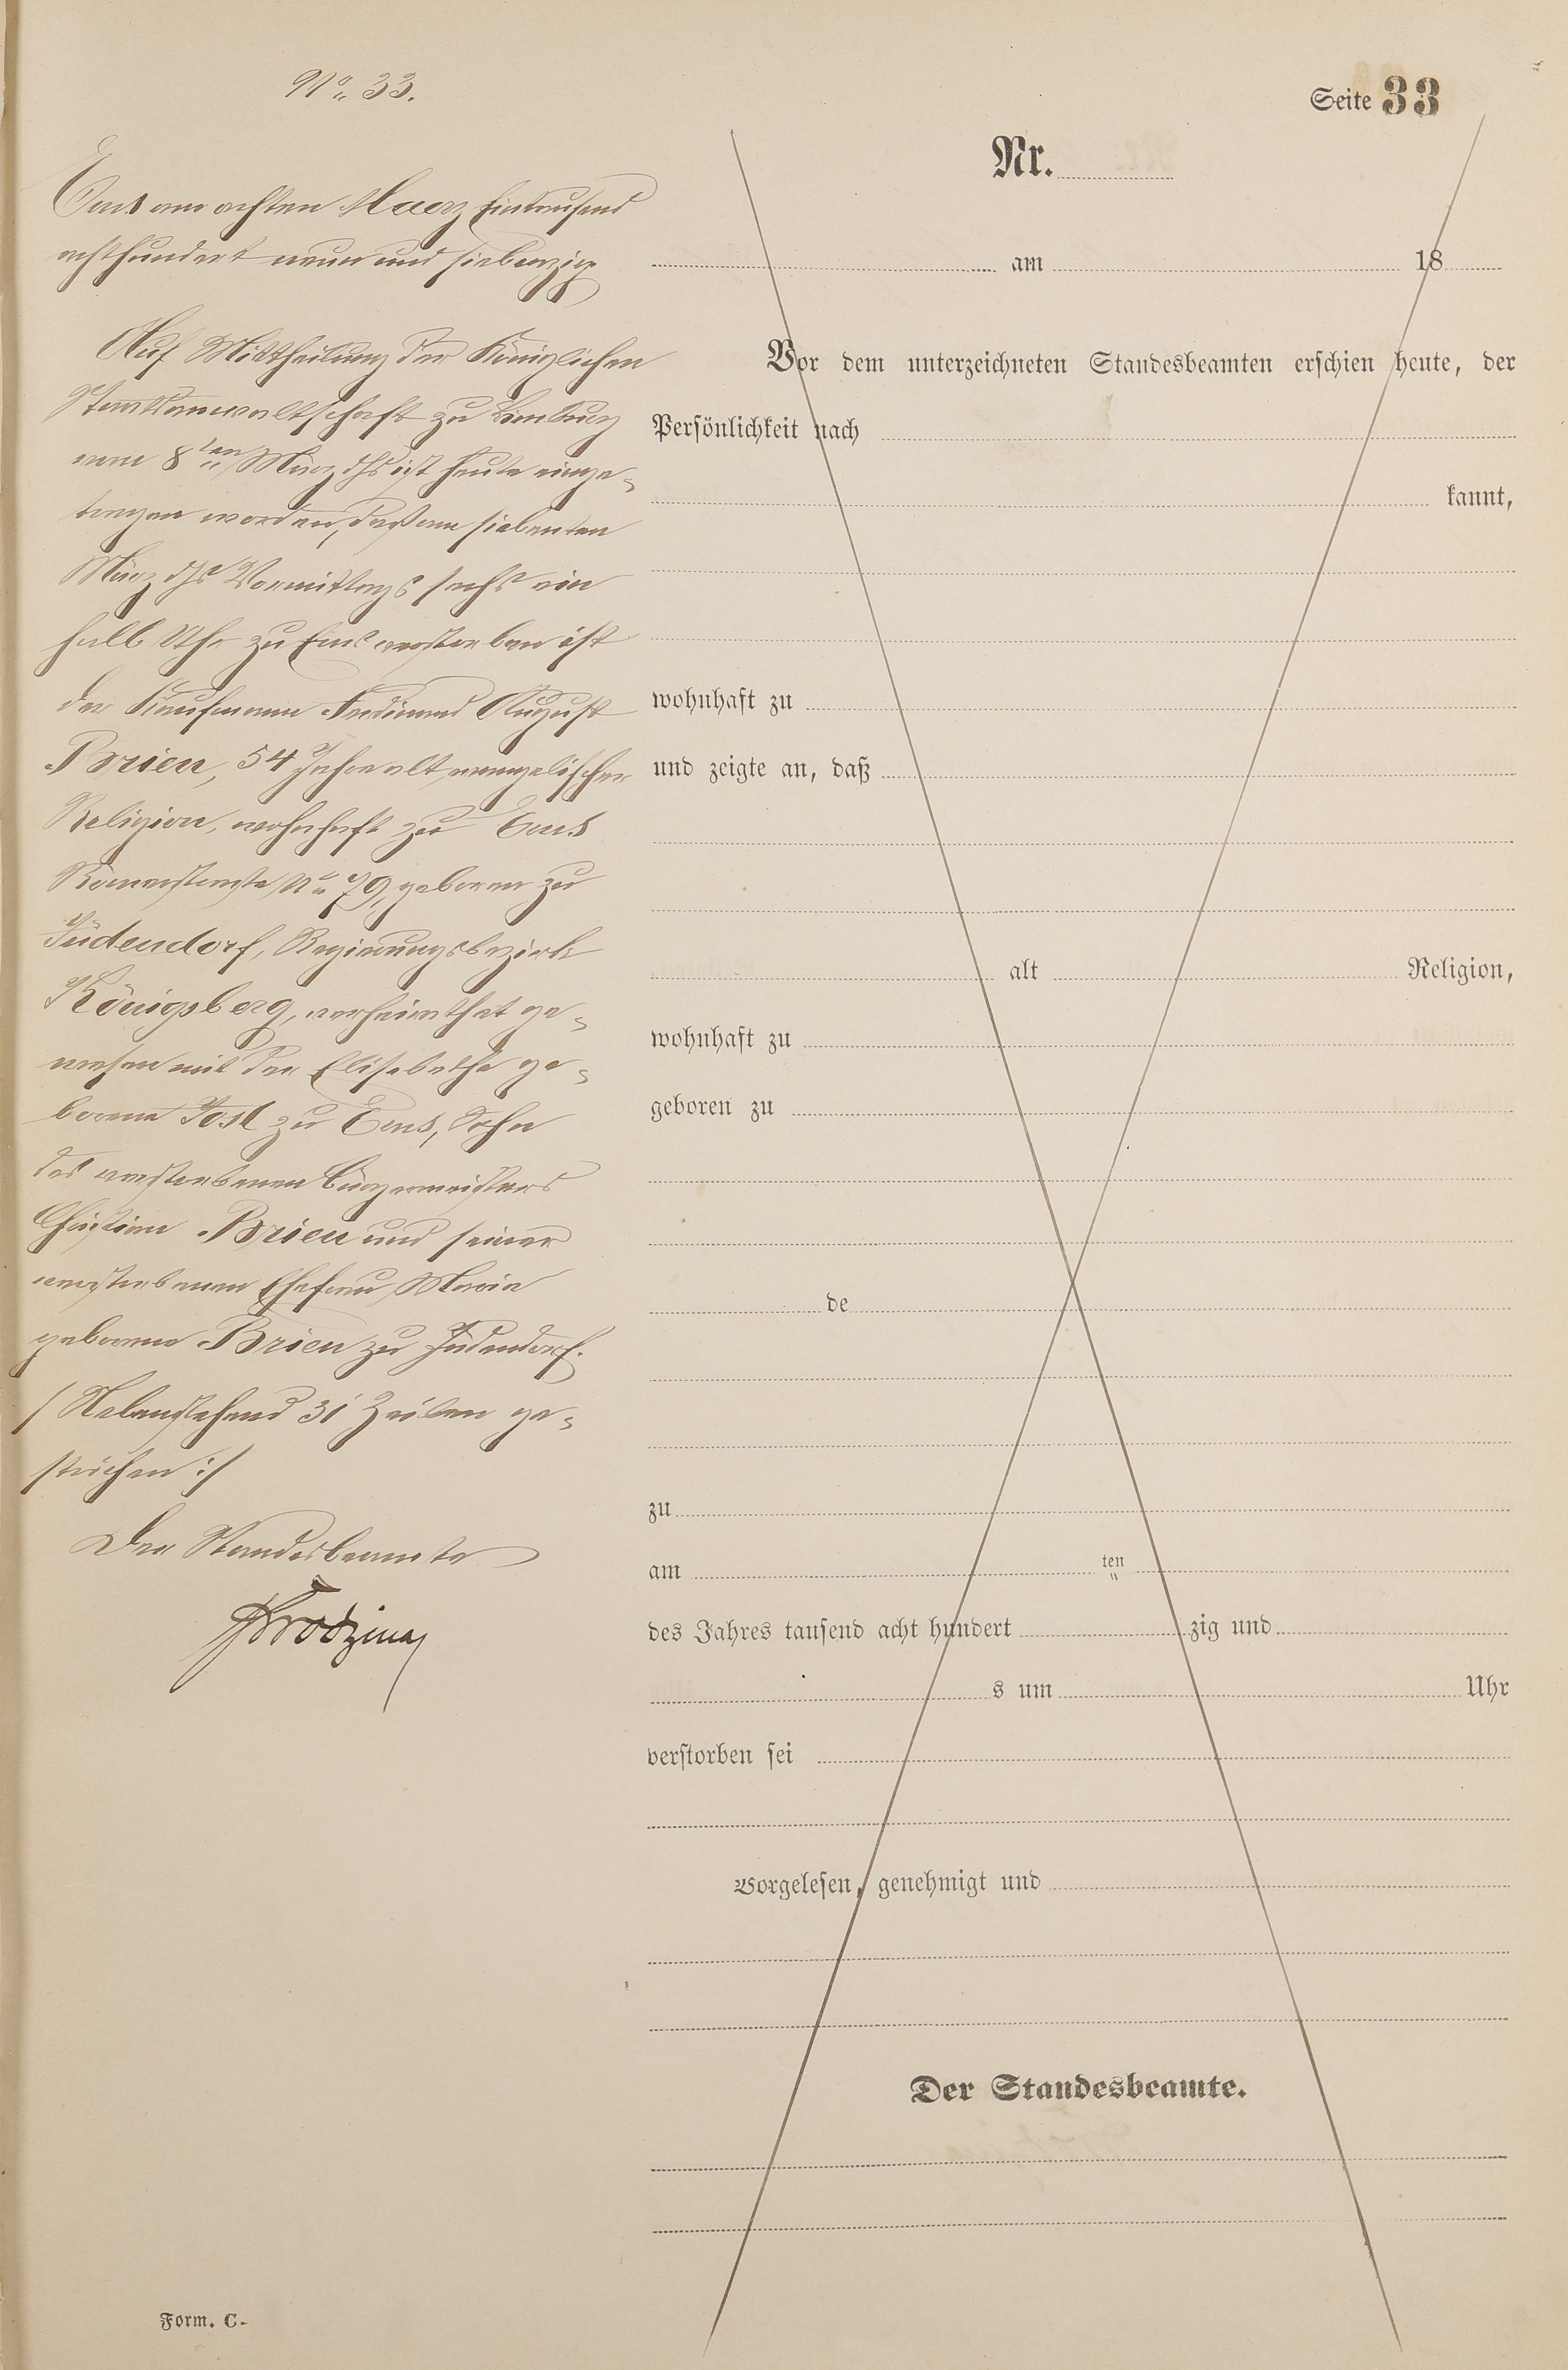 No. 33.
Ems am achten Maerz Eintausend
achthundert neun und siebenzig
Auf Mittheilung der Königlichen
Staatsanwaltschaft zu Limburg
vom 8ten März ds ist heute einge=
tragen worden, daß am siebenten
März ds Vormittags sechs ein
halb Uhr zu Ems verstorben ist
der Kaufmann Ferdinand August
Brien, 54 Jahre alt, evangelischer
Religion, wohnhaft zu Ems
Römerstraße No 79, geboren zu
Jüdendorf, Regierungsbezirk
Königsberg, verheirathet ge=
wesen mit der Elisabetha ge=
borene Jost zu Ems, Sohn
des verstorbenen Bürgermeisters
Christian Brien und seiner
verstorbenen Ehefrau, Maria
geborene Brien zu Jüdendorf.
/ Nebenstehend 31 Zeilen ge=
strichen :/
Der Standesbeamte
Seite 33
Nr.
am 18
Vor dem unterzeichneten Standesbeamten erschien heute, der
Persönlichkeit nach
kannt,
wohnhaft zu
und zeigte an, daß
alt Religion,
wohnhaft zu
geboren zu
de
zu
am ten
des Jahres tausend acht hundert zig und
s um Uhr
verstorben sei
Vorgelesen, genehmigt und
Der Standesbeamte.
Form. C.